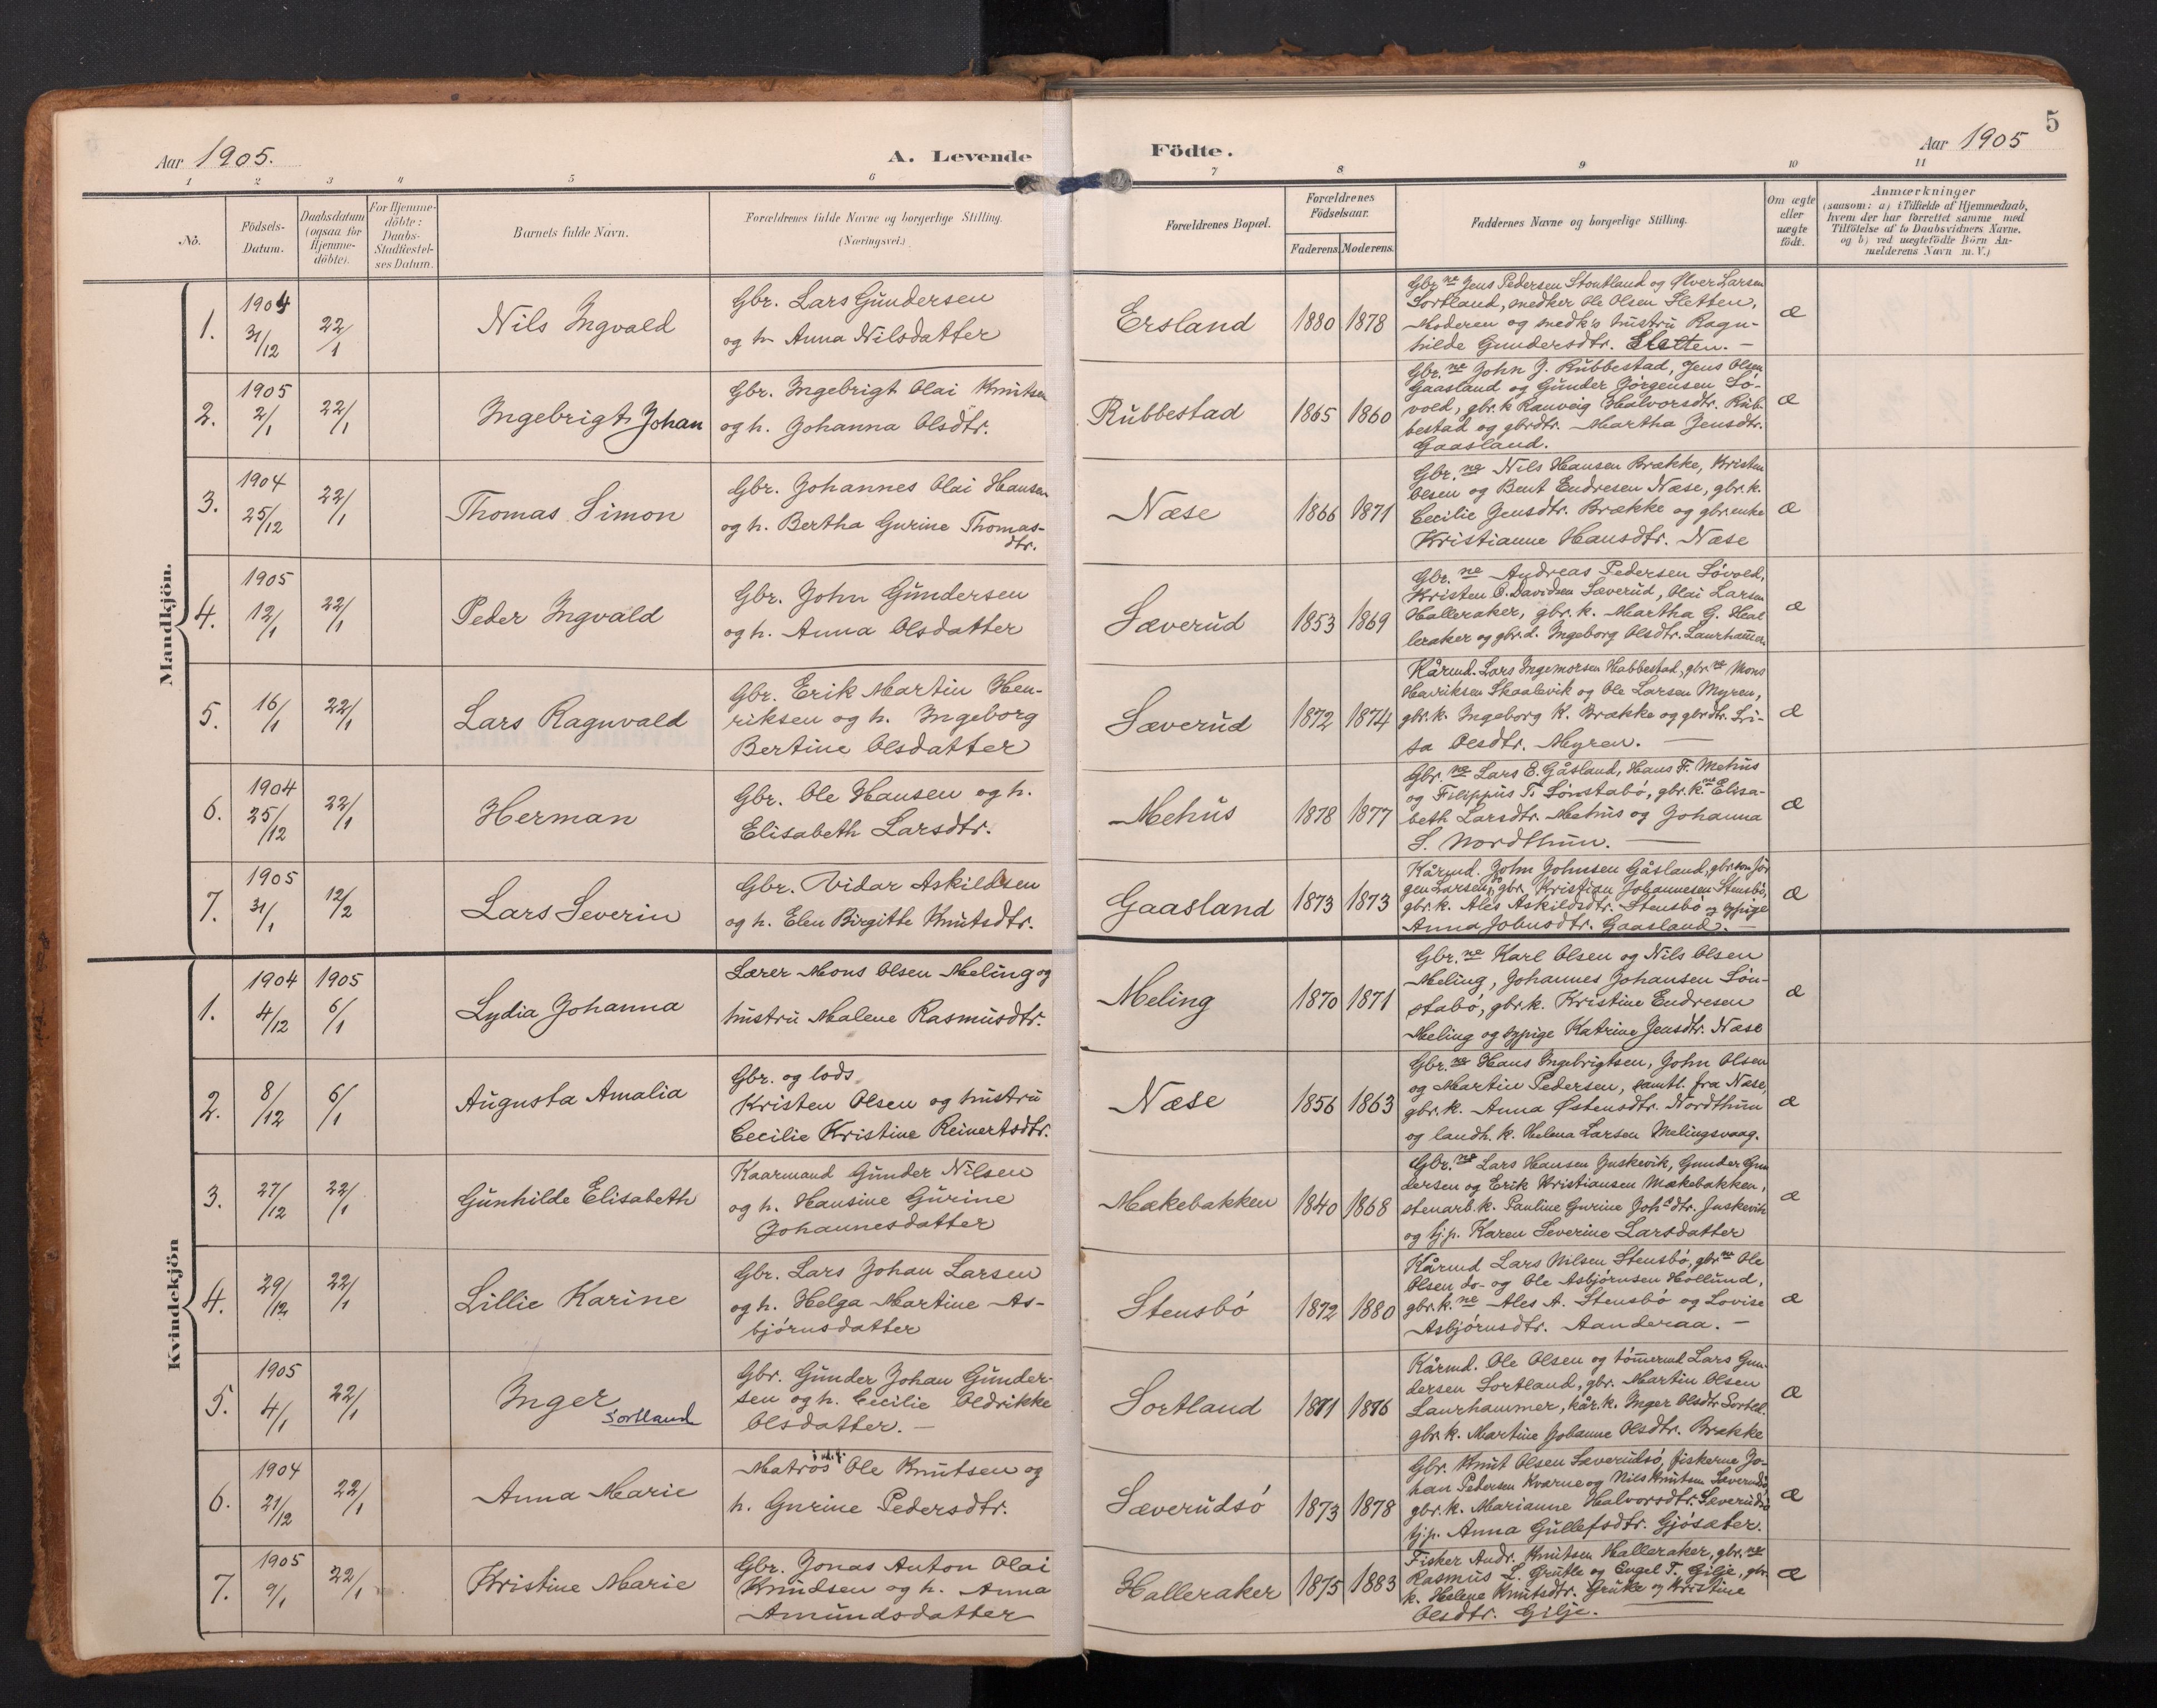 Aar 1905.
A. Levende
1 2 3 4 5 6
No.
Födsels-
Datum.
Daabsdatum
(ogsaa for
Hjemme-
döbte).
For Hjemme-
döbte:
Daabs-
Stadfæstel-
ses Datum.
Barnets fulde Navn.
Forældrenes fulde Navne og borgerlige Stilling.
(Næringsvei.)
Mandkjön.
1.
1904
31/12
22/1
Nils Ingvald
Gbr. Lars Gundersen
og h. Anna Nilsdatter
2.
1905
2/1
22/1
Ingebrigt Johan
Gbr. Ingebrigt Olai Knutsen
og h. Johanna Olsdtr.
3.
1904
25/12
22/1
Thomas Simon
Gbr. Johannes Olai Hansen
og h. Bertha Gurine Thomas-
dtr.
4.
1905
12/1
22/1
Peder Ingvald
Gbr. John Gundersen
og h. Anna Olsdatter
5.
16/1
22/1
Lars Ragnvald
Gbr. Erik Martin Hen-
riksen og h. Ingeborg
Bertine Olsdatter
6.
1904
25/12
22/1
Herman
Gbr. Ole Hansen og h.
Elisabeth Larsdtr.
7.
1905
31/1
12/2
Lars Severin
Gbr. Vidar Askildsen
og h. Elen Birgitte Knutsdtr.
Kvindekjön
1.
1904 1905
4/12
6/1
Lydia Johanna
Lærer Mons Olsen Meling og
hustru Malene Rasmusdtr.
2.
8/12
6/1
Augusta Amalia
Gbr. og lods
Kristen Olsen og hustru
Cecilie Kristine Reinertsdtr.
3.
27/12
22/1
Gunhilde Elisabeth
Kaarmand Gunder Nilsen
og h. Hansine Gurine
Johannesdatter
4.
29/12
22/1
Lillie Karine
Gbr. Lars Johan Larsen
og h. Helga Martine As-
bjørnsdatter
5.
1905
4/1
22/1
Inger
Sortland
Gbr. Gunder Johan Gunder-
sen og h. Cecilie Oldrikke
Olsdatter. —
6.
1904
21/12
22/1
Anna Marie
Matros Ole Knutsen og
h. Gurine Pedersdtr.
7.
1905
9/1
22/1
Kristine Marie
Gbr. Jonas Anton Olai
Knudsen og h. Anna
Amundsdatter
5
Födte.
Aar 1905
7 8 9 10 11
Forældrenes Bopæl.
Forældrenes
Födselsaar.
Faderens. Moderens.
Faddernes Navne og borgerlige Stilling.
Om ægte
eller
uægte
födt.
Anmærkninger
(saasom: a) i Tilfælde af Hjemmedaab,
hvem der har forrettet samme med
Tilföielse af to Daabsvidners Navne,
og b) ved uægtefödte Börn An-
melderens Navn m. V.)
Ersland
1880 1878
Gbr.ne Jens Pedersen Stoutland og Ølver Larsen
Sortland, snedker Ole Olsen Sletten,
Moderen og snedk's hustru Ragn-
hilde Gundersdtr. Sletten. —
æ
Rubbestad
1865 1860
Gbr.ne John J. Rubbestad, Jens Olsen
Gaasland og Gunder Jørgensen Lø-
vold, gbr.k. Rauveig Halvorsdtr. Rub-
bestad og gbrdtr. Martha Jensdtr.
Gaasland.
æ
Næse
1866 1871
Gbr.ne Nils Hansen Brække, Kristen
Olsen og Bent Endresen Næse, gbr.k.
Cecilie Jensdtr. Brække og gbr.enke
Kristianne Hansdtr. Næse
æ
Sæverud
1853 1869
Gbr.ne Andreas Pedersen Løvold,
Kristen O. Davidsen Sæverud, Olai Larsen
Halleraker, gbr.k. Martha G. Hal
leraker og gbr.d. Ingeborg Olsdtr. Laurhammer
æ
Sæverud
1872 1874
Kårmd. Lars Ingemorsen Habbestad, gbr.ne Mons
Henriksen Skaalevik og Ole Larsen Myren,
gbr.k. Ingeborg K. Brække og gbrdtr. Lri-
sa Olsdtr. Myren. —
æ
Mehus
1878 1877
Gbr.ne Lars E. Gåsland, Hans F. Mehus
og Filippus T. Lønstabø, gbr.k.ne Elisa-
beth Larsdtr. Mehus og Johanna
S. Nordthun. —
æ
Gaasland
1873 1873
Kårmd. John Johnsen Gåsland, gbr.søn Jør
gen Larsen, do, gbr. Kristian Johannesen Stensbø,
gbr.k. Ales Askildsdtr. Stensbø og sypige
Anna Johnsdtr. Gaasland. —
æ
Meling
1870 1871
Gbr.ne Karl Olsen og Nils Olsen
Meling, Johannes Johansen Løn-
stabø, gbr.k. Kristine Endresen
Meling og sypige Katrine Jensdtr. Næse
æ
Næse
1856 1863
Gbr.ne Hans Ingebrigtsen, John Olsen
og Martin Pedersen, samtl. fra Næse,
gbr.k. Anna Østensdtr. Nordthun
og landh.k. Helena Larsen Melingsvaag.
æ
Mækebakken
1840 1868
Gbr.ne Lars Hansen Juskevik, Gunder Gun
dersen og Erik Kristiansen Mækebakken,
stenarb.k. Pauline Gurine Joh.s dtr. Juskevik
og tj.p. Karen Severine Larsdatter
æ
Stensbø
1872 1880
Kårmd Lars Nilsen Stensbø, gbr.ne Ole
Olsen do- og Ole Asbjørnsen Hollund,
gbr.k.ne Ales A. Stensbø og Lovise
Asbjørnsdtr. Aanderaa. —
æ
Sortland
1871 1876
Kårmd. Ole Olsen og tømermd Lars Gun-
dersen Sortland, gbr. Martin Olsen
Laurhammer, kår.k. Inger Olsdtr Sortld.
gbr.k. Martine Johanne Olsdtr. Brække
æ
Sæverudsø
1873 1878
Gbr. Knut Olsen Sæverudsø, fiskerne Jo-
han Pedersen Kvarne og Nils Knutsen Sæverudsø
gbr.k. Marianne Halvorsdtr. Sæverudsø
tj.p. Anna Gullefsdtr. Gjøsæter.
æ
Halleraker
1875 1883
Fisker Andr. Knutsen Halleraker, gbr.ne
Rasmus L. Grutle og Engel T. Gilje, gbr.
k. Helene Knutsdtr. Grutle og Kristine
Olsdtr. Gilje. —
æ